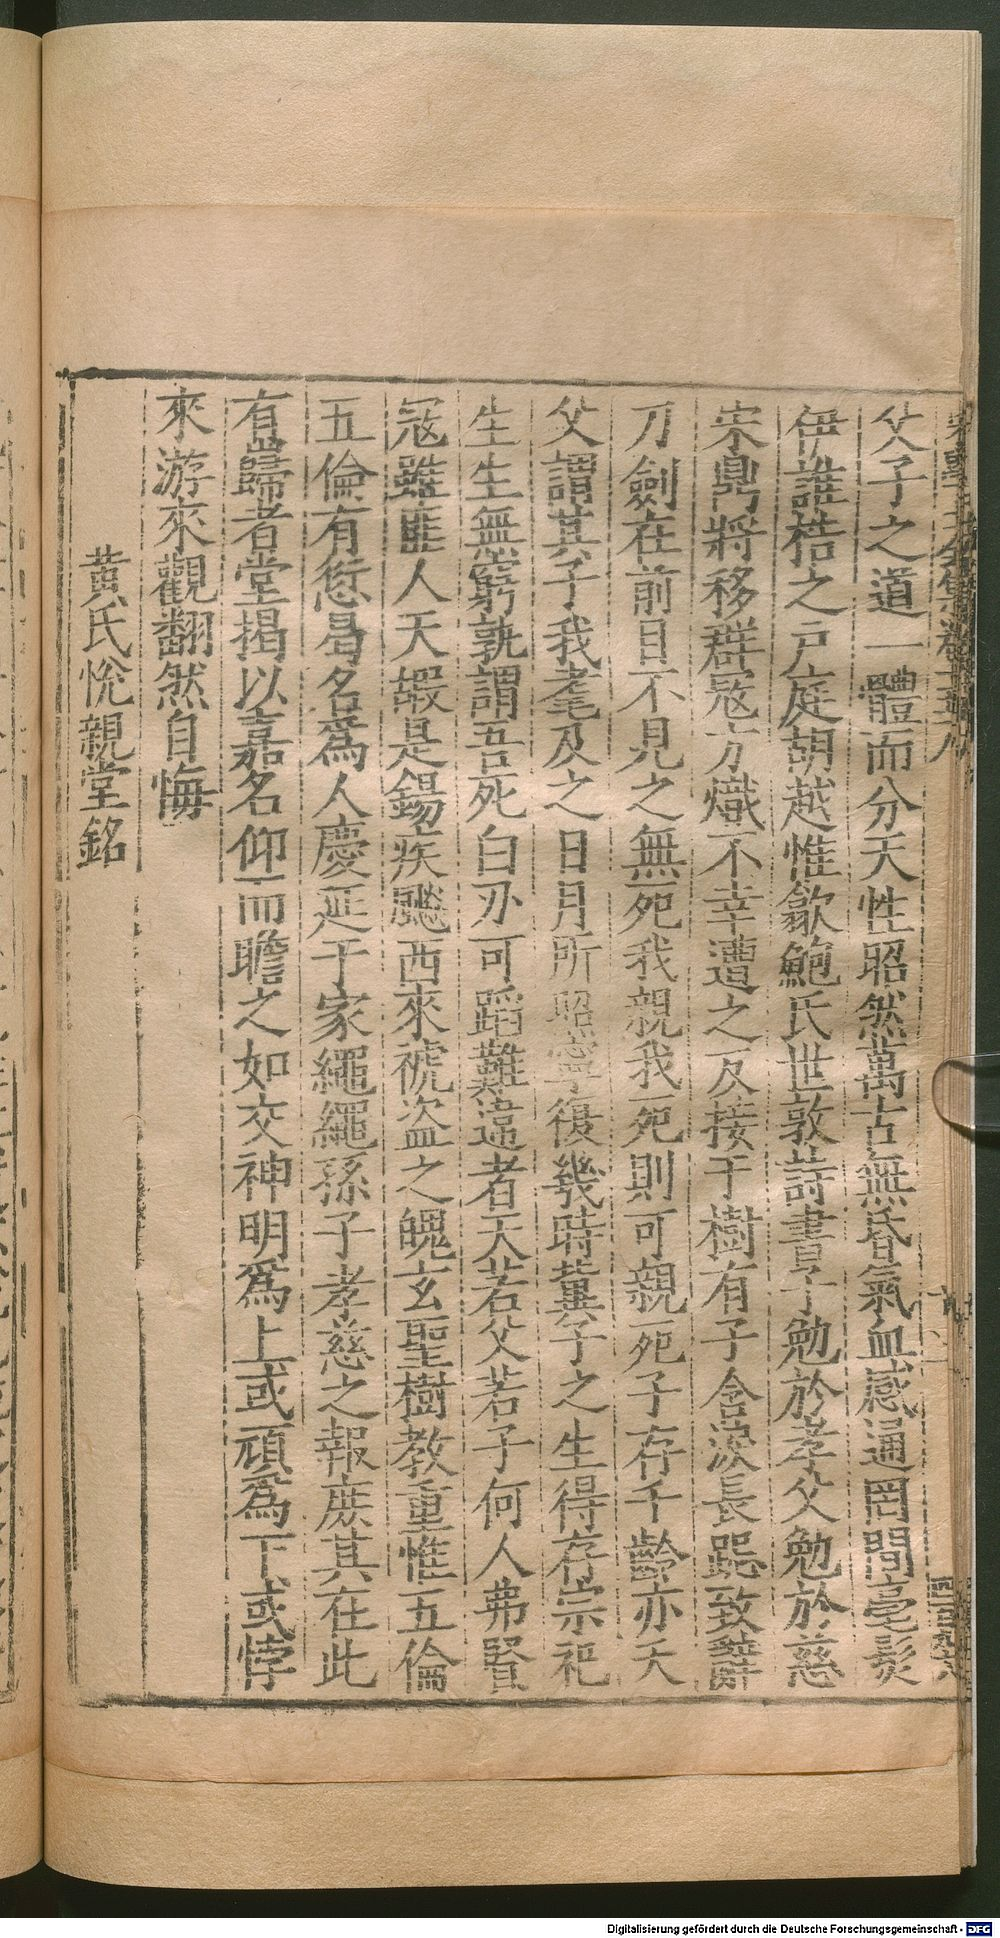 父子之道一體而分天性昭然萬古無昏氣血感通罔間毫髮
伊誰梏之戶庭胡越惟歙鮑氏世敦詩書子勉於孝父勉於慈
宋鼎將移群寇方熾不幸遭之反接于樹有子含淚長跽致辭
刀劍在前目不見之無死我親我死則可親死子存千齡亦夭
父謂其子我耄及之日月所照寧復幾時冀子之生得存宗祀
生生無窮孰謂吾死白刃可蹈難違者天若父若子何人弗賢
冦雖匪人天嘏是錫疾飈西來褫盜之魄玄聖樹教重惟五倫
五倫有愆曷名爲人慶延于家繩繩孫子孝慈之報庶其在此
有巋者堂揭以嘉名仰而瞻之如交神明爲上或頑爲下或悖
來游來觀翻然自悔
黃氏悅親堂銘
Digitalisierung gefördert durch die Deutsche Forschungsgemeinschaft - DFG